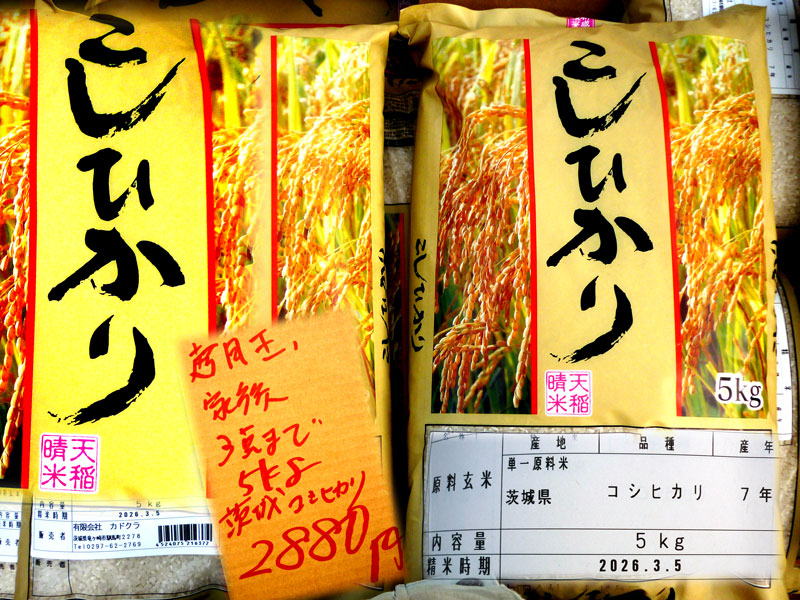 こしひかり
天稲
晴米
内容量 5kg
精米時期 2026.3.5
販売者 有限会社 カドクラ
Tel0297-62-2769
4524075216372
3点まで
5kg
茨城 コシヒカリ
2880円
こしひかり
こしひかり
天稲
晴米
5kg
産地 品種 産年
単一原料米
原料玄米 茨城県 コシヒカリ 7年
内容量 5kg
精米時期 2026.3.5